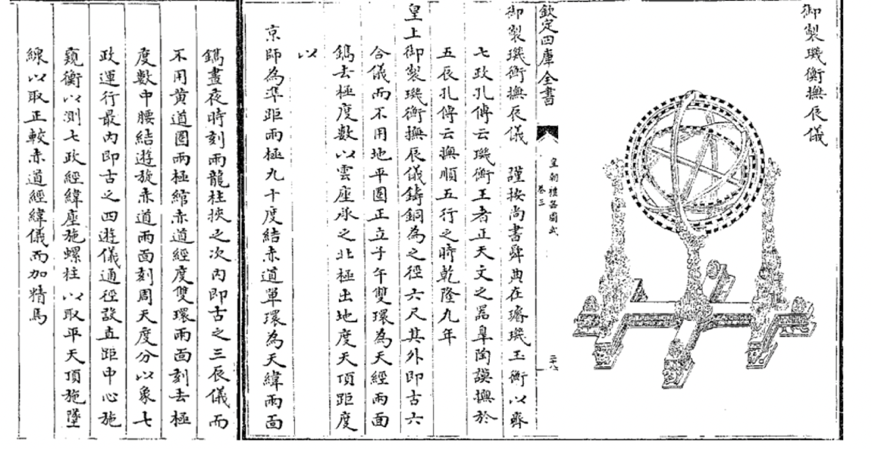 御製璣衡撫辰儀
欽定四庫全書
皇朝禮器圖式
卷三
御製璣衡撫辰儀 謹按尚書舜典在璿璣玉衡以齊
七政孔傳云璣衡王者正天文之器皐陶謨撫於
五辰孔傳云撫順五行之時乾隆九年
皇上御製璣衡撫辰儀鑄銅為之徑六尺其外即古六
合儀而不用地平圈正立子午雙環為天經兩面
鐫去極度數以雲座承之北極出地度天頂距度
以
京師為準距兩極九十度結赤道單環為天緯兩面
鐫晝夜時刻兩龍柱挾之次內即古之三辰儀而
不用黃道圈兩極綰赤道經度雙環兩面刻去極
度數中腰結遊旋赤道兩面刻周天度分以象七
政運行最內即古之四遊儀通徑設直距中心施
窺衡以測七政經緯座施螺柱以取平天頂施墜
線以取正較赤道經緯儀而加精焉